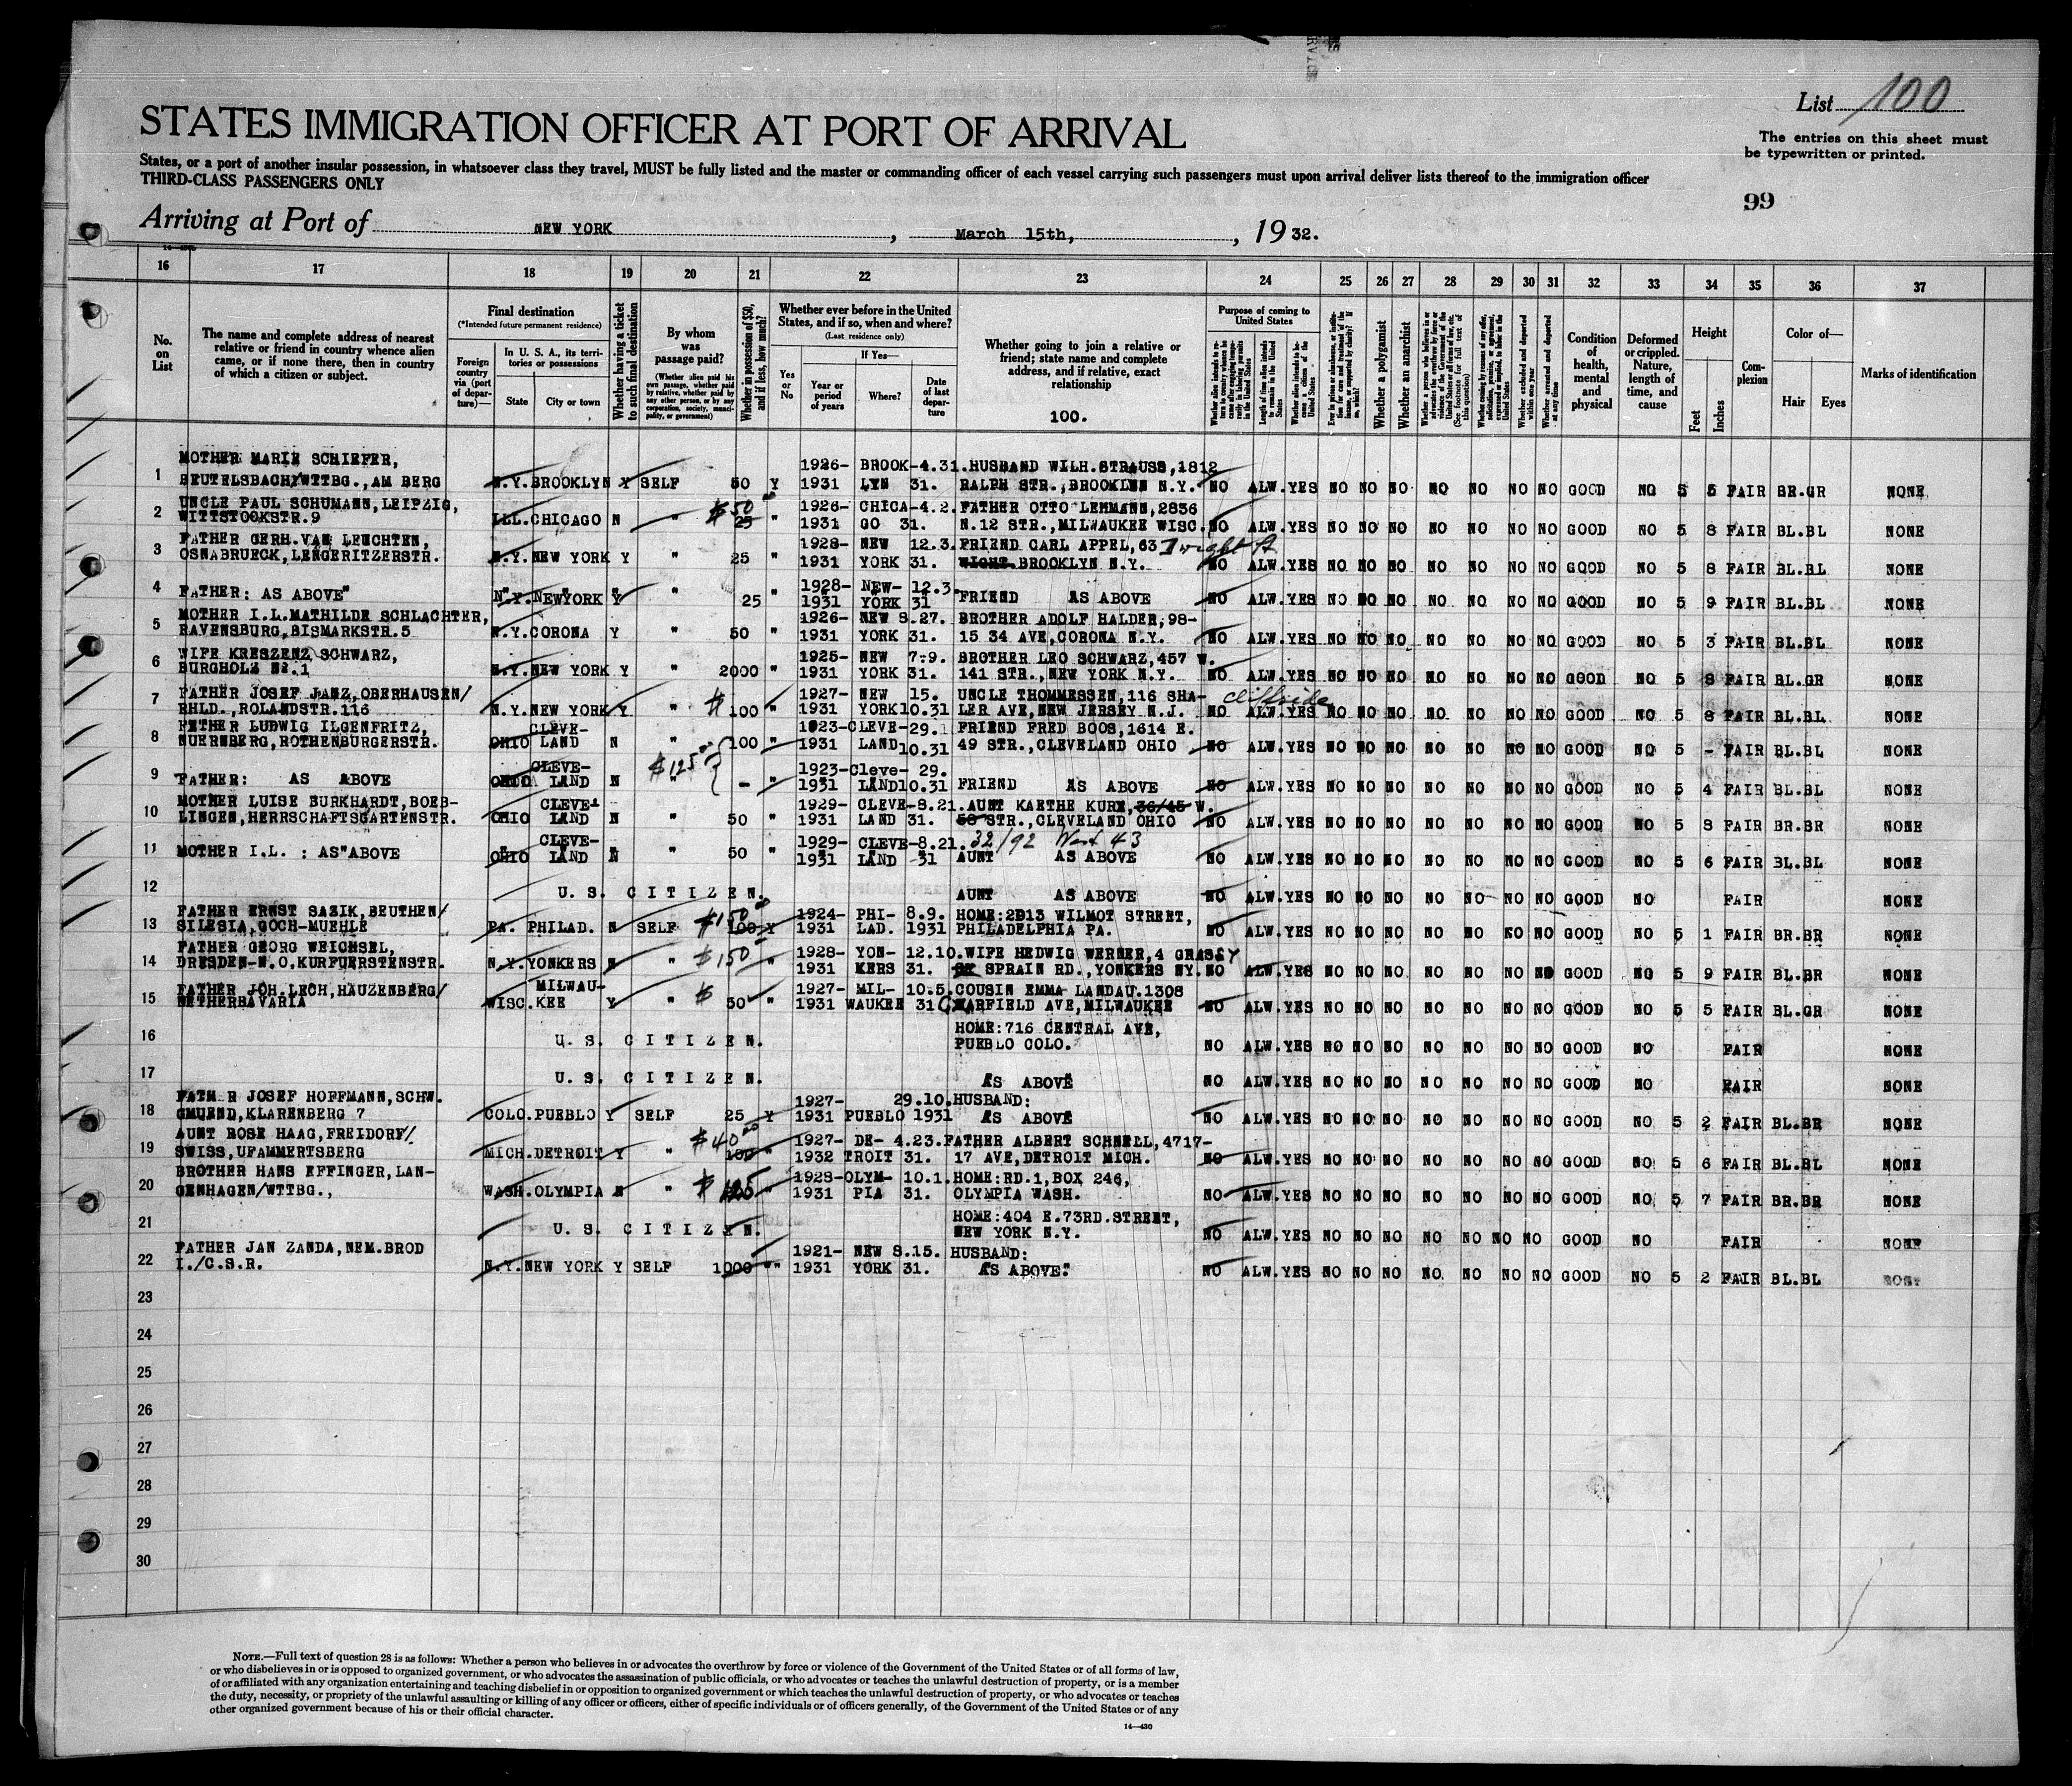 List 100
STATES IMMIGRATION OFFICER AT PORT OF ARRIVAL
The entries on this sheet must
be typewritten or printed.
States, or a port of another insular possession, in whatsoever class they travel, MUST be fully listed and the master or commanding officer of each vessel carrying such passengers must upon arrival deliver lists thereof to the immigration officer
THIRD-CLASS PASSENGERS ONLY
99
Arriving at Port of NEW YORK, March 15th, 1932.
16 17 18 19 20 21 22 23 24 25 26 27 28 29 30 31 32 33 34 35 36 37
No. on List
The name and complete address of nearest
relative or friend in country whence alien
came, or if none there, then in country
of which a citizen or subject.
Final destination
(*Intended future permanent residence)
Foreign country via (port of departure)—
In U. S. A., its territories or possessions
State
City or town
Whether having a ticket to such final destination
By whom was passage paid?
(Whether alien paid his own passage, whether paid by relative, whether paid by any other person, or by any corporation, society, municipality, or government)
Whether in possession of $50, and if less, how much?
Whether ever before in the United
States, and if so, when and where?
(Last residence only)
Yes or No
If Yes—
Year or period of years
Where?
Date of last departure
Whether going to join a relative or
friend; state name and complete
address, and if relative, exact
relationship
100.
Purpose of coming to United States
Whether a polygamist
Whether an anarchist
Condition of health, mental and physical
Deformed or crippled. Nature, length of time, and cause
Height
Feet
Inches
Complexion
Color of—
Hair
Eyes
Marks of identification
MOTHER MARIE SCHIEFER, 1926- BROOK-4.31. HUSBAND WILH.STRAUSS,1812
1 BEUTELSBACH/WTTBG.,AM BERG N.Y. BROOKLYN Y SELF 50 Y 1931 LYN 31. RALPH STR.,BROOKLYN N.Y. NO ALW. YES NO NO NO NO NO NO NO GOOD NO 5 5 FAIR BR.GR NONE
UNCLE PAUL SCHUMANN,LEIPZIG, $50 1926- CHICA-4.2. FATHER OTTO LEHMANN,2836
2 WITTSTOCKSTR.9 ILL. CHICAGO N " 25 " 1931 GO 31. N.12 STR.,MILWAUKEE WISC. NO ALW. YES NO NO NO NO NO NO NO GOOD NO 5 8 FAIR BL.BL NONE
FATHER GERH.VAN LENCHTEN, 1928- NEW 12.3. FRIEND CARL APPEL,63 Dwight St
3 OSNABRUECK,LENGERITZERSTR. N.Y. NEW YORK Y " 25 1931 YORK 31. BROOKLYN N.Y. NO ALW. YES NO NO NO NO NO NO NO GOOD NO 5 8 FAIR BL.BL NONE
1928- NEW- 12.3.
4 FATHER: AS ABOVE" N.Y. NEWYORK Y 25 1931 YORK 31 FRIEND AS ABOVE NO ALW. YES NO NO NO NO NO NO NO GOOD NO 5 9 FAIR BL.BL NONE
MOTHER I.L.MATHILDE SCHLACHTER, 1926- NEW 8.27. BROTHER ADOLF HALDER,98-
5 RAVENSBURG,BISMARKSTR.5 N.Y. CORONA Y " 50 " 1931 YORK 31. 15 34 AVE,CORONA N.Y. NO ALW. YES NO NO NO NO NO NO NO GOOD NO 5 3 FAIR BL.BL NONE
WIFE KRESZENZ SCHWARZ, 1925- NEW 7.9. BROTHER LEO SCHWARZ,457 W.
6 BURGHOLZ Nr.1 N.Y. NEW YORK Y " 2000 " 1931 YORK 31. 141 STR.,NEW YORK N.Y. NO ALW. YES NO NO NO NO NO NO NO GOOD NO 5 8 FAIR BL.GR NONE
FATHER JOSEF JANZ,OBERHAUSEN/ 1927- NEW 15. UNCLE THOMMESSEN,116 SHA- Cliffside
7 RHLD.,ROLANDSTR.116 N.Y. NEW YORK Y " $ 100 " 1931 YORK 10.31 LER AVE,NEW JERSEY N.J. NO ALW. YES NO NO NO NO NO NO NO GOOD NO 5 8 FAIR BL.BL NONE
FATHER LUDWIG ILGENFRITZ, CLEVE- 1923-CLEVE-29. FRIEND FRED BOOS,1614 E.
8 NUERNBERG,ROTHENBURGERSTR. OHIO LAND N " 100 " 1931 LAND 10.31 49 STR.,CLEVELAND OHIO NO ALW. YES NO NO NO NO NO NO NO GOOD NO 5 - FAIR BL.BL NONE
CLEVE- $125 1923-Cleve- 29.
9 FATHER: AS ABOVE OHIO LAND N - " 1931 LAND 10.31 FRIEND AS ABOVE NO ALW. YES NO NO NO NO NO NO NO GOOD NO 5 4 FAIR BL.BL NONE
MOTHER LUISE BURKHARDT,BOEB- CLEVE- 1929- CLEVE-8.21. AUNT KAETHE KURZ,36/45 W.
10 LINGEN,HERRSCHAFTSGARTENSTR. OHIO LAND N " 50 " 1931 LAND 31. 58 STR.,CLEVELAND OHIO NO ALW. YES NO NO NO NO NO NO NO GOOD NO 5 8 FAIR BR.BR NONE
CLEVE- 1929- CLEVE-8.21. 32/92 West 43
11 MOTHER I.L. : AS"ABOVE OHIO LAND N 50 " 1931 LAND 31 AUNT AS ABOVE NO ALW. YES NO NO NO NO NO NO NO GOOD NO 5 6 FAIR BL.BL NONE
12 U. S. C I T I Z E N. AUNT AS ABOVE NO ALW. YES NO NO NO NO NO NO NO GOOD NO FAIR NONE
FATHER ERNST SAZIK,BEUTHEN/ $150 1924- PHI- 8.9. HOME:2913 WILMOT STREET,
13 SILESIA,GOCH-MUEHLE PA. PHILAD. N SELF 100 Y 1931 LAD. 1931 PHILADELPHIA PA. NO ALW. YES NO NO NO NO NO NO NO GOOD NO 5 1 FAIR BR.BR NONE
FATHER GEORG WEICHSEL, 1928- YON- 12.10. WIFE HEDWIG WERNER,4 GRASSY
14 DRESDEN-N.O.KURFUERSTENSTR. N.Y. YONKERS N " $150 " 1931 KERS 31. SPRAIN RD.,YONKERS NY. NO ALW. YES NO NO NO NO NO NO NO GOOD NO 5 9 FAIR BL.BR NONE
FATHER JOH.LECH,HAUZENBERG/ MILWAU- 1927- MIL- 10.5. COUSIN EMMA LANDAU.1308
15 NETHERBAVARIA WISC. KEE Y " $ 50 " 1931 WAUKEE 31 GARFIELD AVE,MILWAUKEE NO ALW. YES NO NO NO NO NO NO NO GOOD NO 5 5 FAIR BL.GR NONE
HOME:716 CENTRAL AVE,
16 U. S. C I T I Z E N. PUEBLO COLO. NO ALW. YES NO NO NO NO NO NO NO GOOD NO FAIR NONE
17 U. S. C I T I Z E N. AS ABOVE NO ALW. YES NO NO NO NO NO NO NO GOOD NO FAIR NONE
FATH R JOSEF HOFFMANN,SCHW. 1927- 29.10. HUSBAND:
18 GMUEND,KLARENBERG 7 COLO. PUEBLO Y SELF 25 Y 1931 PUEBLO 1931 AS ABOVE NO ALW. YES NO NO NO NO NO NO NO GOOD NO 5 2 FAIR BL.BR NONE
AUNT ROSE HAAG,FREIDORF/ $40 1927- DE- 4.23. FATHER ALBERT SCHNELL,4717-
19 SWISS,UFAMMERTSBERG MICH. DETROIT Y " 100 " 1932 TROIT 31. 17 AVE,DETROIT MICH. NO ALW. YES NO NO NO NO NO NO NO GOOD NO 5 6 FAIR BL.BL NONE
BROTHER HANS EFFINGER,LAN- 1928-OLYM- 10.1. HOME:RD.1,BOX 246,
20 GENHAGEN/WTTBG., WASH. OLYMPIA N " $ 125 " 1931 PIA 31. OLYMPIA WASH. NO ALW. YES NO NO NO NO NO NO NO GOOD NO 5 7 FAIR BR.BR NONE
HOME:404 E.73RD.STREET,
21 U. S. C I T I Z E N. NEW YORK N.Y. NO ALW. YES NO NO NO NO NO NO NO GOOD NO FAIR NONE
FATHER JAN ZANDA,NEM.BROD 1921- NEW 8.15. HUSBAND:
22 I./C.S.R. N.Y. NEW YORK Y SELF 1000 "" 1931 YORK 31. AS ABOVE." NO ALW. YES NO NO NO NO NO NO NO GOOD NO 5 2 FAIR BL.BL
23
24
25
26
27
28
29
30
NOTE.—Full text of question 28 is as follows: Whether a person who believes in or advocates the overthrow by force or violence of the Government of the United States or of all forms of law,
or who disbelieves in or is opposed to organized government, or who advocates the assassination of public officials, or who advocates or teaches the unlawful destruction of property, or is a member
of or affiliated with any organization entertaining and teaching disbelief in or opposition to organized government or which teaches the unlawful destruction of property, or who advocates or teaches
the duty, necessity, or propriety of the unlawful assaulting or killing of any officer or officers, either of specific individuals or of officers generally, of the Government of the United States or of any
other organized government because of his or their official character.
14—430